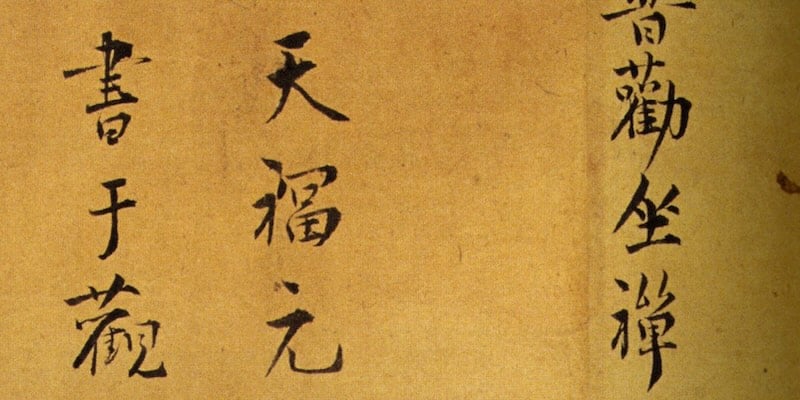 普勸坐禪
天福元
書于觀